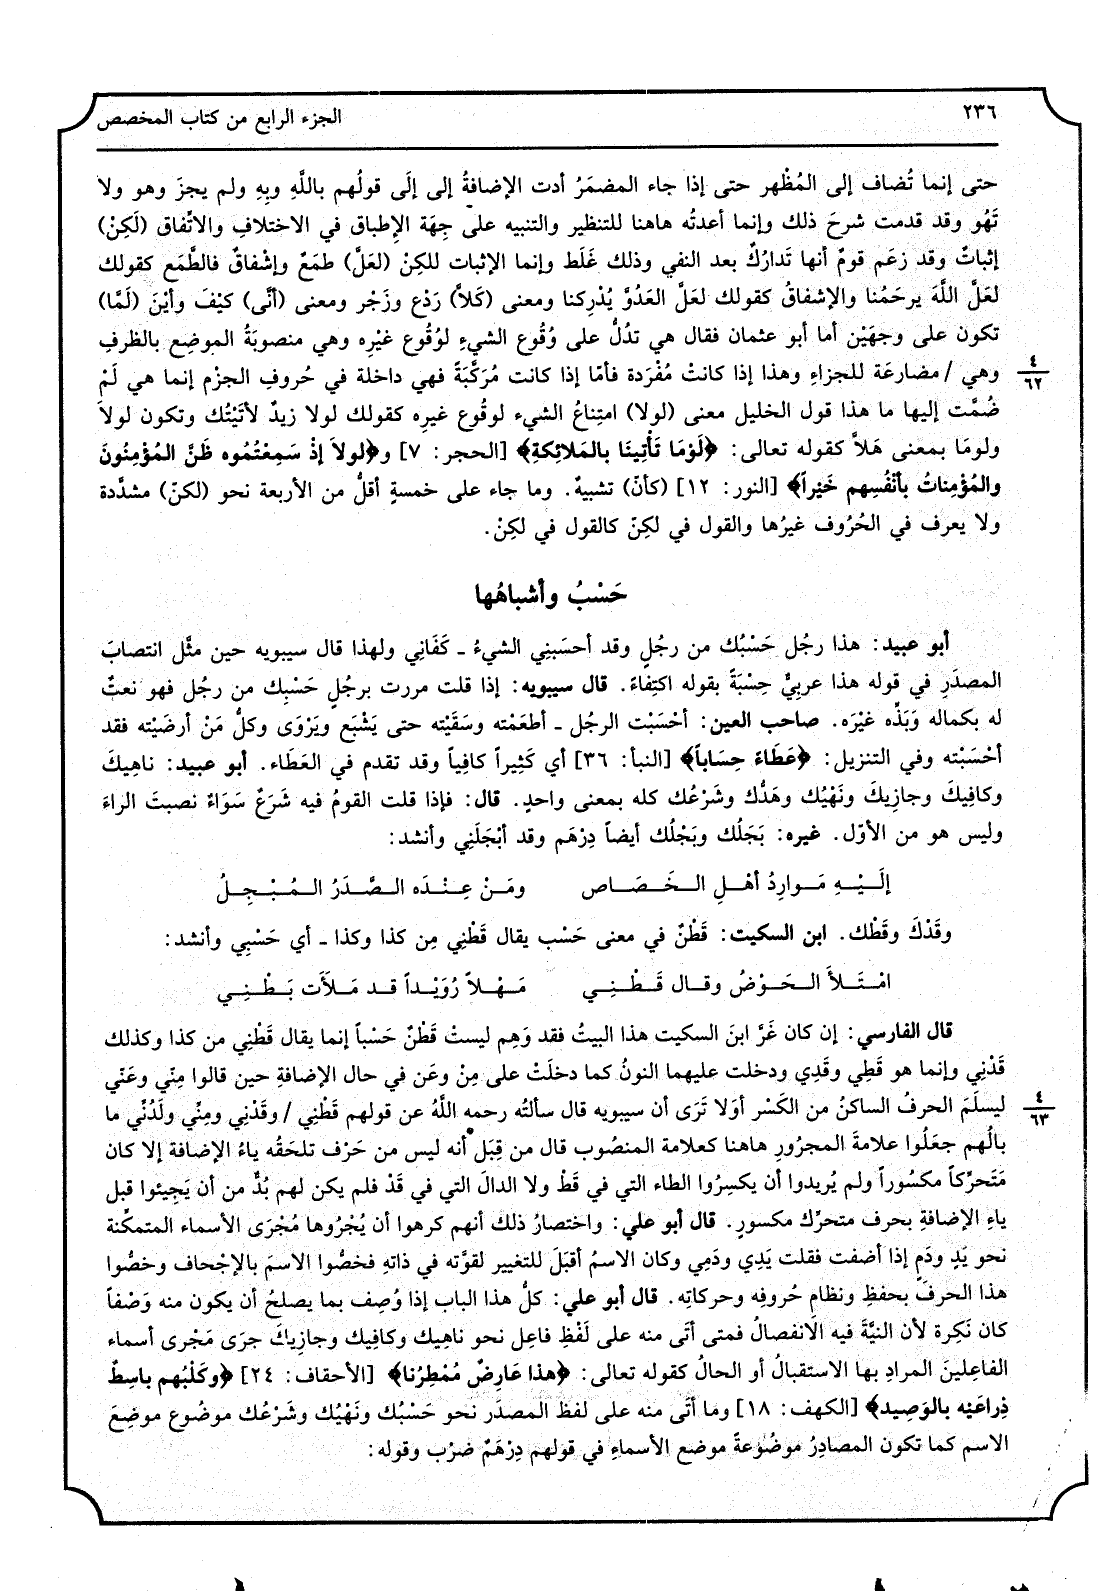 ٢٣٦ الجزء الرابع من كتاب المخصص
حتى إنما تُضاف إلى المُظْهر حتى إذا جاء المضمَرُ أدت الإضافةُ إلى إلَى قولُهم باللَّهِ وبِهِ ولم يجزَ وهو ولا
تَهُو وقد قدمت شرحَ ذلك وإنما أعدتُه هاهنا للتنظير والتنبيه على جِهَة الإطباق في الاختلافِ والاتِّفاق (لَكِنْ)
إثباتٌ وقد زعَم قومٌ أنها تَدارُكٌ بعد النفي وذلك غَلَط وإنما الإثبات للكِنْ (لعَلَّ) طمَعٌ وإشْفاقٌ فالطَّمَع كقولك
لعَلَّ اللَّهَ يرحَمُنا والإشفاقُ كقولك لعَلَّ العَدُوَّ يُدْرِكنا ومعنى (كَلاَّ) رَدْع وزَجْر ومعنى (أنَّى) كيْفَ وأيْنَ (لَمَّا)
تكون على وجهَيْن أما أبو عثمان فقال هي تدُلُّ على وُقُوع الشيءِ لوُقُوع غيْرِه وهي منصوبَةُ الموضِع بالظرفِ
وهي / مضارعَة للجزاءِ وهذا إذا كانتْ مُفْرَدة فأمّا إذا كانت مُرَكَّبَةً فهي داخلة في حُروفِ الجزْم إنما هي لَمْ
٤
٦٢
ضُمَّت إليها ما هذا قول الخليل معنى (لولا) امتِناعُ الشيء لوقُوع غيره كقولك لولا زيدٌ لأتَيْتُك وتكون لولاَ
ولومَا بمعنى هَلاَّ كقوله تعالى: ﴿لَوْمَا تَأْتِينَا بالمَلائِكةِ﴾ [الحجر: ٧] و﴿لولاَ إذْ سَمِعْتُمُوه ظَنَّ المُؤْمِنُونَ
والمُؤْمِناتُ بأنْفُسِهم خَيْراً﴾ [النور: ١٢] (كأنّ) تشبيهٌ. وما جاء على خمسةٍ أقلُّ من الأربعة نحو (لكنّ) مشدَّدة
ولا يعرف في الحُرُوف غيرُها والقول في لكِنّ كالقول في لكِنْ.
حَسْبُ وأشباهُها
أبو عبيد: هذا رجُل حَسْبُك من رجُلٍ وقد أحسَبنِي الشيءُ ـ كَفَانِي ولهذا قال سيبويه حين مثَّل انتصابَ
المصدَرِ في قوله هذا عربِيٌّ حِسْبَةً بقوله اكتِفاءً. قال سيبويه: إذا قلت مررت برجُلٍ حَسْبِك من رجُل فهو نعتٌ
له بكماله وَبَذِّه غيْرَه. صاحب العين: أحْسَبْت الرجُل ـ أطعَمْته وسقَيْته حتى يَشْبَع ويَرْوَى وكلُّ مَنْ أرضَيْته فقد
أحْسَبْته وفي التنزيل: ﴿عَطَاءً حِسَاباً﴾ [النبأ: ٣٦] أي كَثِيراً كافِياً وقد تقدم في العَطَاء. أبو عبيد: ناهِيكَ
وكافِيكَ وجازِيكَ ونَهْيُك وهَدُّك وشَرْعُك كله بمعنى واحدٍ. قال: فإذا قلت القومُ فيه شَرَعٌ سَوَاءٌ نصبتَ الراءَ
وليس هو من الأوّل. غيره: بَجَلُك وبَجْلُك أيضاً دِرْهَم وقد أبْجَلَنِي وأنشد:
إلَيْهِ مَوارِدُ أهْلِ الخَصَاص ومَنْ عِنْدَه الصَّدَرُ المُبْجِلُ
وقَدْكَ وقَطْك. ابن السكيت: قَطْنٌ في معنى حَسْب يقال قَطْنِي مِن كذا وكذا ـ أي حَسْبِي وأنشد:
امْتَلأَ الحَوْضُ وقال قَطْنِي مَهْلاً رُوَيْداً قد مَلأَت بَطْنِي
قال الفارسي: إن كان غَرَّ ابنَ السكيت هذا البيتُ فقد وَهِم ليستْ قَطْنٌ حَسْباً إنما يقال قَطْنِي من كذا وكذلك
قَدْنِي وإنما هو قَطِي وقَدِي ودخلت عليهما النونُ كما دخلَتْ على مِنْ وعَن في حال الإضافةِ حين قالوا مِنّي وعَنّي
ليسلَمَ الحرفُ الساكنُ من الكَسْر أوَلا تَرَى أن سيبويه قال سألته رحمه اللَّهُ عن قولهم قَطْنِي / وقَدْنِي ومِنِّي ولَدُنِّي ما
٤
٦٣
بالُهم جعَلُوا علامةَ المجرُورِ هاهنا كعلامة المنصُوب قال من قِبَل أنه ليس من حَرْف تلحَقُه ياءُ الإضافة إلا كان
مَتَحرِّكاً مكسُوراً ولم يُريدوا أن يكسِرُوا الطاء التي في قَطْ ولا الدالَ التي في قَدْ فلم يكن لهم بُدٌّ من أن يَجِيئوا قبل
ياءِ الإضافةِ بحرف متحرِّك مكسورٍ. قال أبو علي: واختصارُ ذلك أنهم كرهوا أن يُجْرُوها مُجْرَى الأسماء المتمكِّنة
نحو يَدٍ ودَم إذا أضفت فقلت يَدِي ودَمِي وكان الاسمُ أقبَلَ للتغيير لقوَّته في ذاتِه فخصُّوا الاسمَ بالإجْحاف وخصُّوا
هذا الحرفَ بحفظِ ونظام حُروفِه وحركاتِه. قال أبو علي: كلُّ هذا الباب إذا وُصِف بما يصلحُ أن يكون منه وَصْفاً
كان نَكِرة لأن النيَّةَ فيه الانفصالُ فمتى أتَى منه على لَفْظِ فاعِل نحو ناهِيك وكافِيك وجازِيكَ جرَى مَجْرى أسماء
الفاعِلينَ المرادِ بها الاستقبالُ أو الحالُ كقوله تعالى: ﴿هذا عَارِضٌ مُمْطِرُنا﴾ [الأحقاف: ٢٤] ﴿وكَلْبُهم باسِطٌ
ذِراعَيْه بالوَصِيد﴾ [الكهف: ١٨] وما أتَى منه على لفظ المصدَر نحو حَسْبُك ونَهْيُك وشَرْعُك موضُوع موضِعَ
الاسم كما تكون المصادِرُ موضُوعةً موضع الأسماءِ في قولهم دِرْهَمٌ ضرْب وقوله: